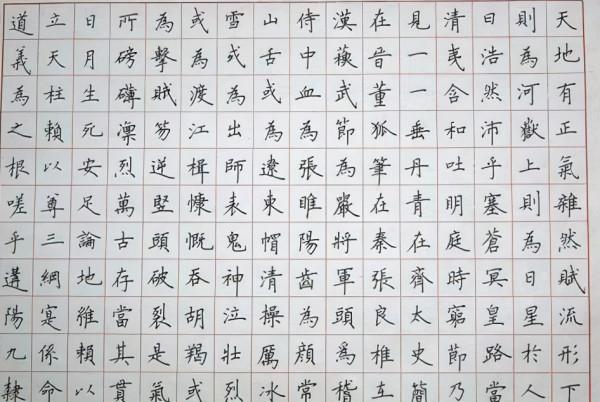 天地有正氣雜然賦流形下
則為河嶽上則為日星於人
曰浩然沛乎塞蒼冥皇路當
清夷含和吐明庭時窮節乃
見一一垂丹青在齊太史簡
在晉董狐筆在秦張良椎在
漢蘓武節為嚴將軍頭為稽
侍中血為張睢陽齒為顏常
山舌或為遼東帽清操厲冰
雪或為出師表鬼神泣壯烈
或為渡江楫慷慨吞胡羯或
為擊賊笏逆豎頭破裂是氣
所磅礴凛烈萬古存當其貫
日月生死安足論地維賴以
立天柱賴以尊三綱寔係命
道義為之根嗟乎遘陽九隸